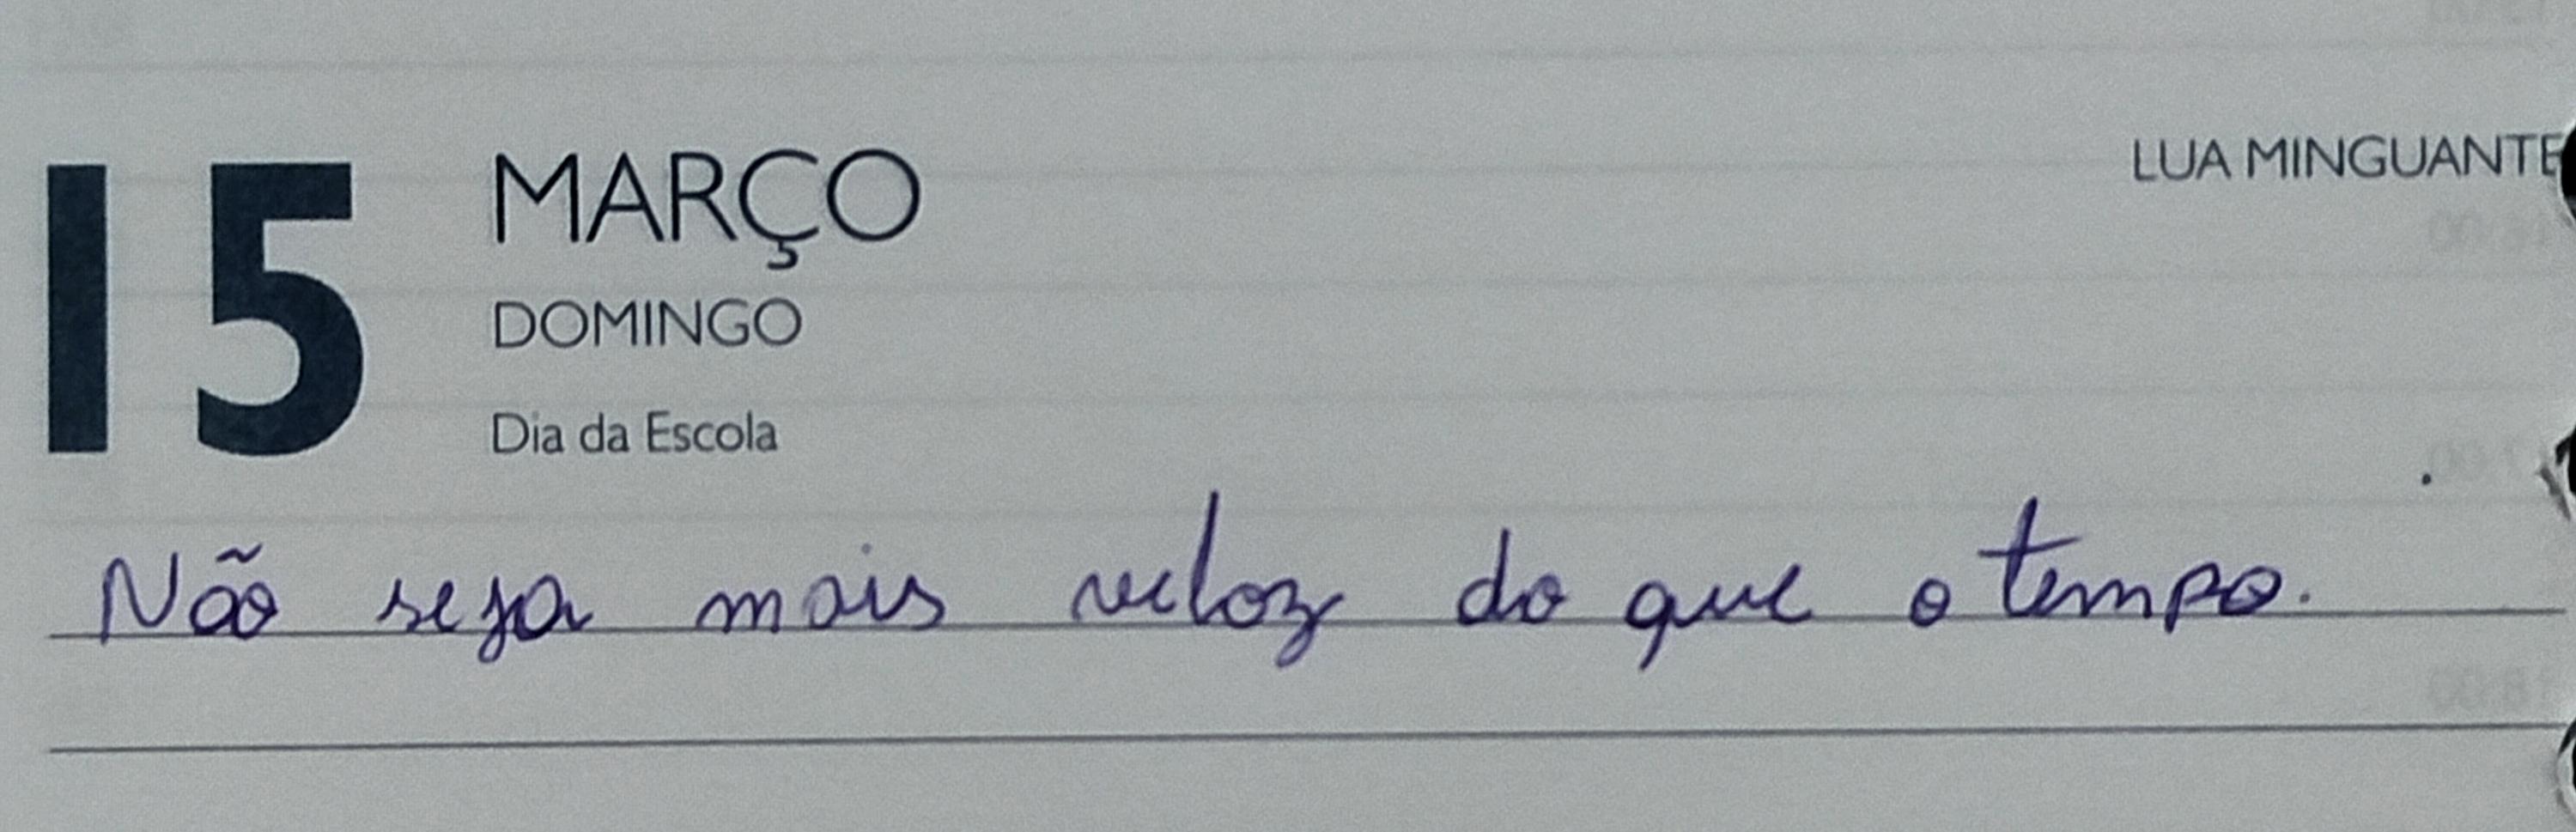 15 MARÇO LUA MINGUANTE
DOMINGO
Dia da Escola
Não seja mais veloz do que o tempo.